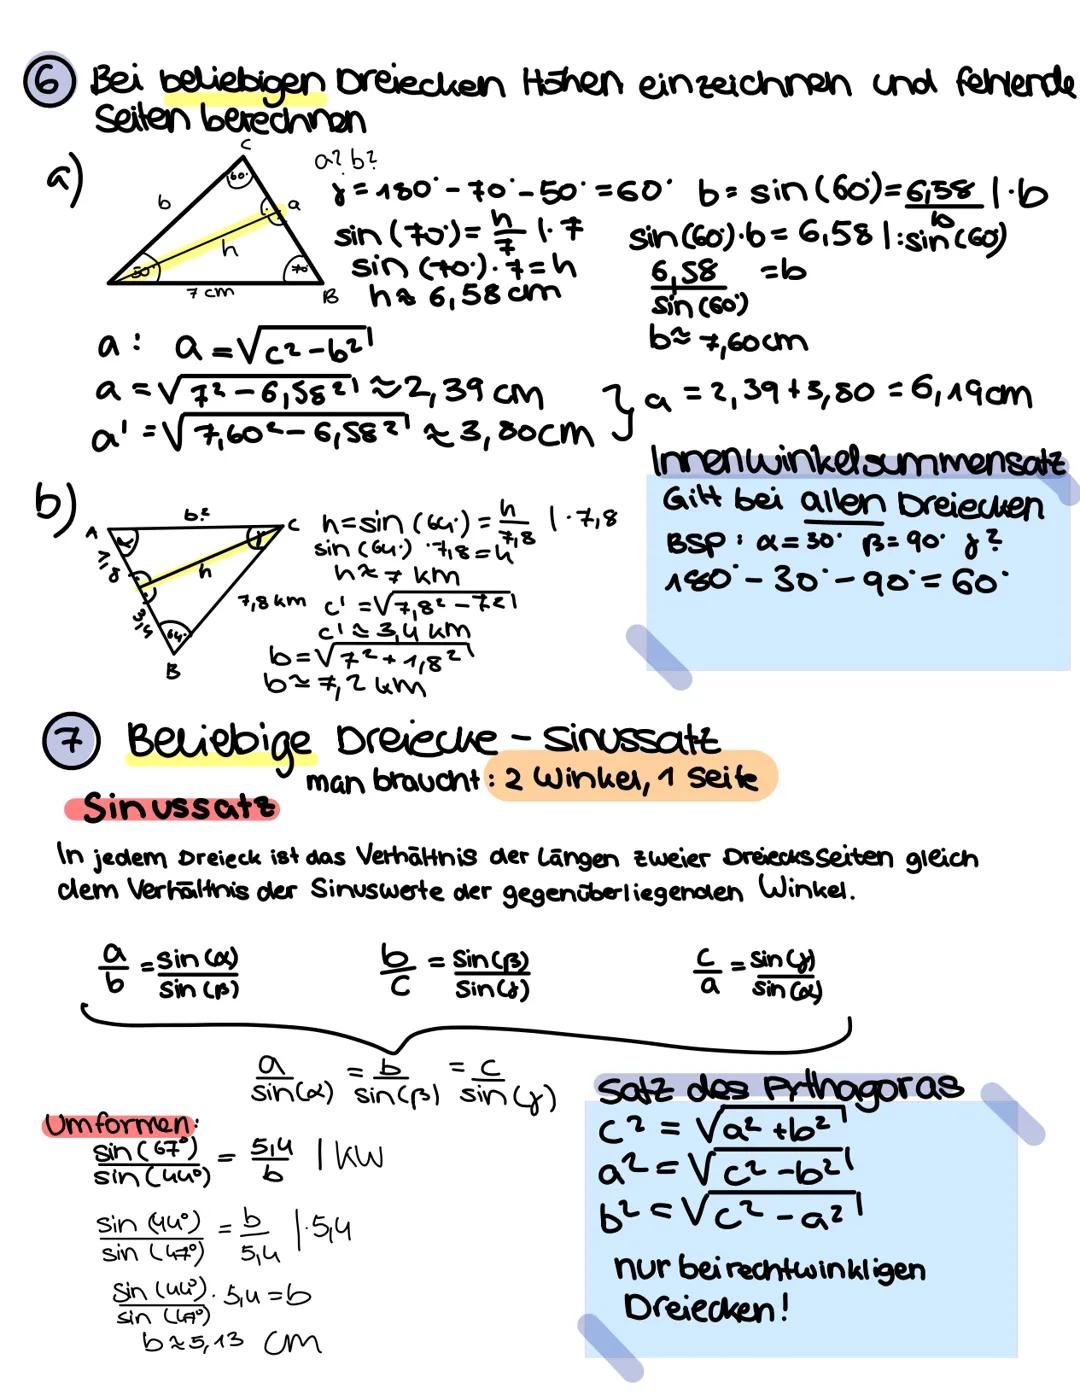 6 Bei beliebigen Dreiecken Höhen einzeichnen und fehlende
Seiten berechnen
a)
C
60°
b
a
h
50°
70°
7 cm
B
a? b?
γ = 180° - 70° - 50° = 60°
sin (70°) = h/7 | · 7
sin (70°) · 7 = h
h ≈ 6,58 cm
b = sin (60°) = 6,58/b | · b
sin (60) · b = 6,58 | : sin (60)
6,58/sin (60°) = b
b ≈ 7,60 cm
a: a = √c² - b²
a = √7² - 6,58² ≈ 2,39 cm
a' = √7,60² - 6,58² ≈ 3,80 cm
} a = 2,39 + 3,80 = 6,19 cm
Innenwinkelsummensatz
Gilt bei allen Dreiecken
BSP: α = 30° β = 90° γ?
180° - 30° - 90° = 60°
b)
A
b?
C
α
γ
h
3,4
64°
7,8 km
B
h = sin (64°) = h/7,8 | · 7,8
sin (64°) · 7,8 = h
h ≈ 7 km
c' = √7,8² - 7²
c' ≈ 3,4 km
b = √7² + 1,8²
b ≈ 7,2 km
7 Beliebige Dreiecke - Sinussatz
man braucht: 2 Winkel, 1 Seite
Sinussatz
In jedem Dreieck ist das Verhältnis der Längen zweier Dreiecksseiten gleich
dem Verhältnis der Sinuswerte der gegenüberliegenden Winkel.
a/b = sin (α)/sin (β)
b/c = sin (β)/sin (γ)
c/a = sin (γ)/sin (α)
a/sin (α) = b/sin (β) = c/sin (γ)
Umformen:
sin (67°)/sin (44°) = 5,4/b | KW
sin (44°)/sin (67°) = b/5,4 | · 5,4
sin (44°)/sin (67°) · 5,4 = b
b ≈ 5,13 cm
Satz des Pythagoras
c² = √a² + b²
a² = √c² - b²
b² = √c² - a²
nur bei rechtwinkligen
Dreiecken!